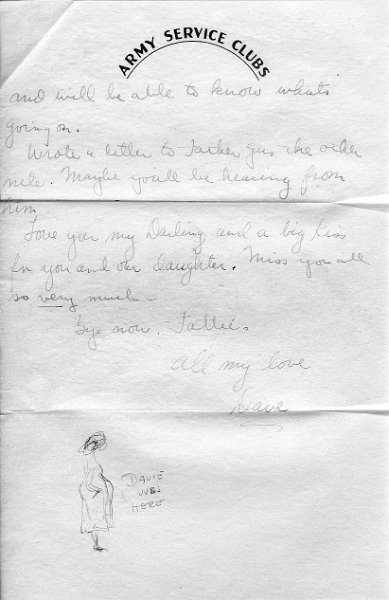 ARMY SERVICE CLUBS
and will be able to know whats
going on.
Wrote a letter to Father Gus the other
nite. Maybe you'll be hearing from
him
Love you my Darling and a big kiss
for you and our daughter. Miss you all
so very much.
Bye now,
All my love
Dave
DAVIE
WUBS
HERE